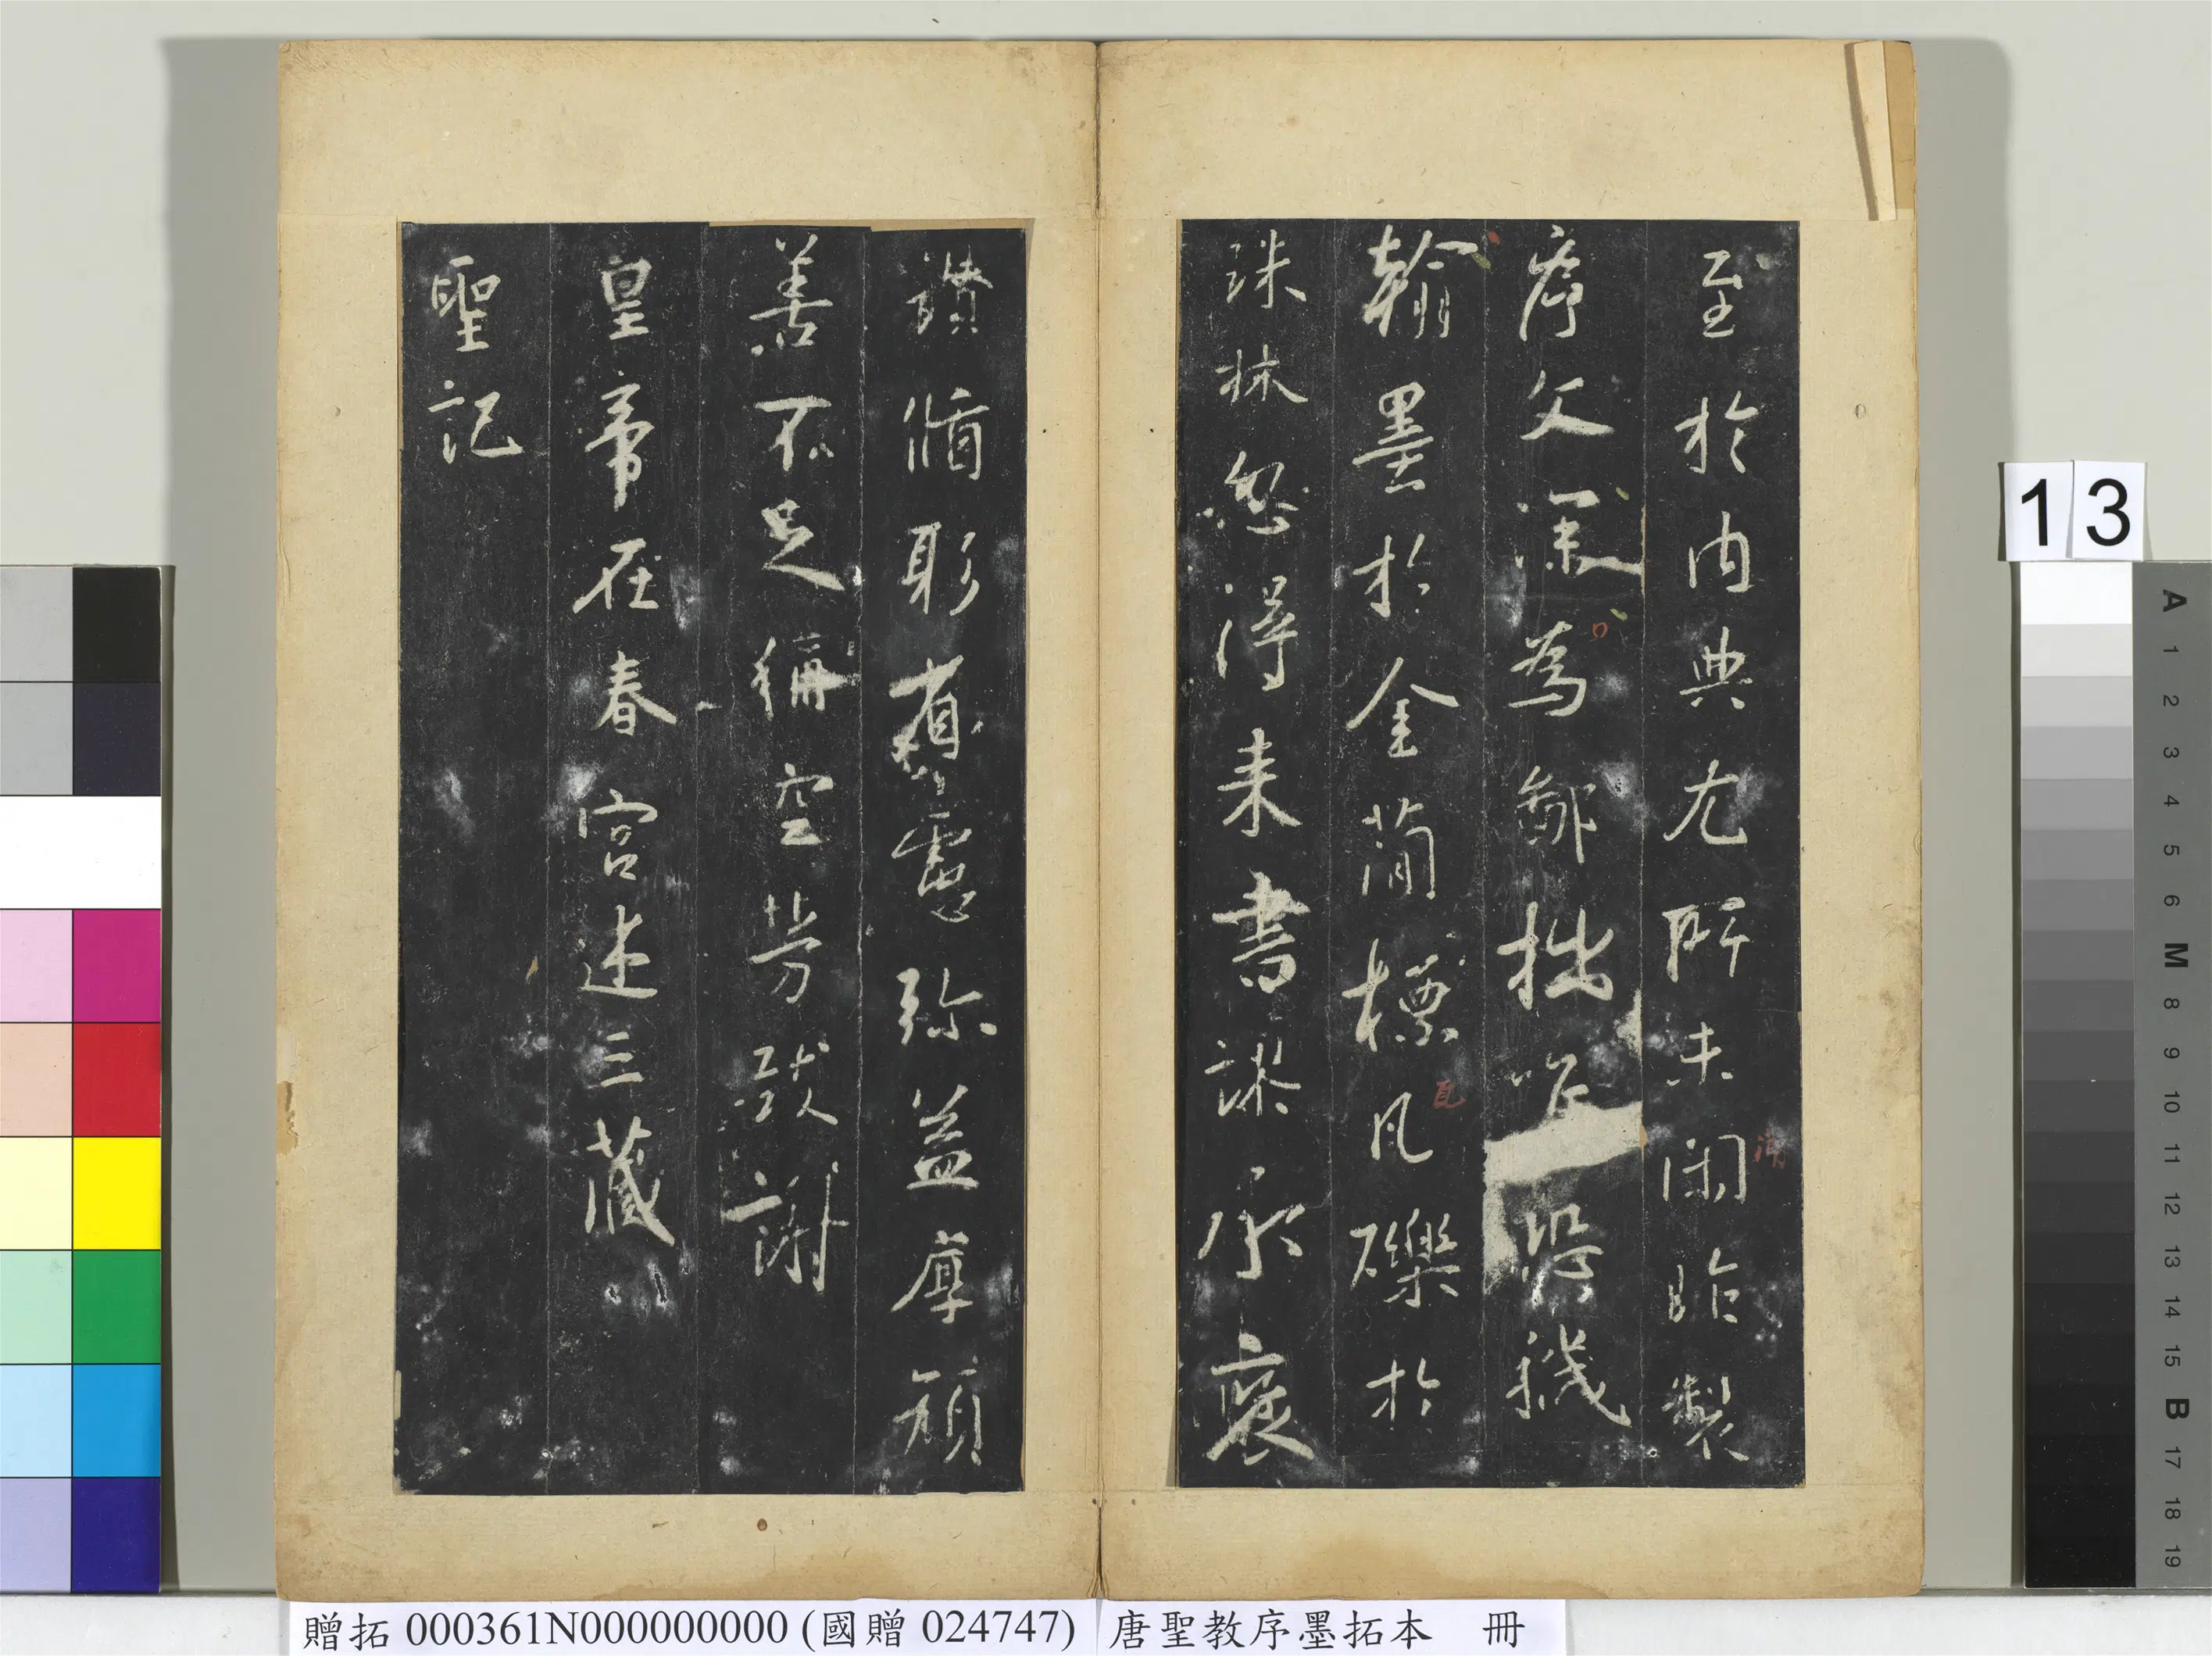 至於內典尤所未閑昨製
序文深為鄙拙唯恐穢
翰墨於金簡標瓦礫於
珠林忽得来書謬承褒
讚脩躬省慮弥益厚顏
善不足稱空勞致謝
皇帝在春宮述三藏
聖記
13
A 1 2 3 4 5 6 M 8 9 10 11 12 13 14 15 B 17 18 19
贈拓 000361N000000000 (國贈 024747) 唐聖教序墨拓本 冊